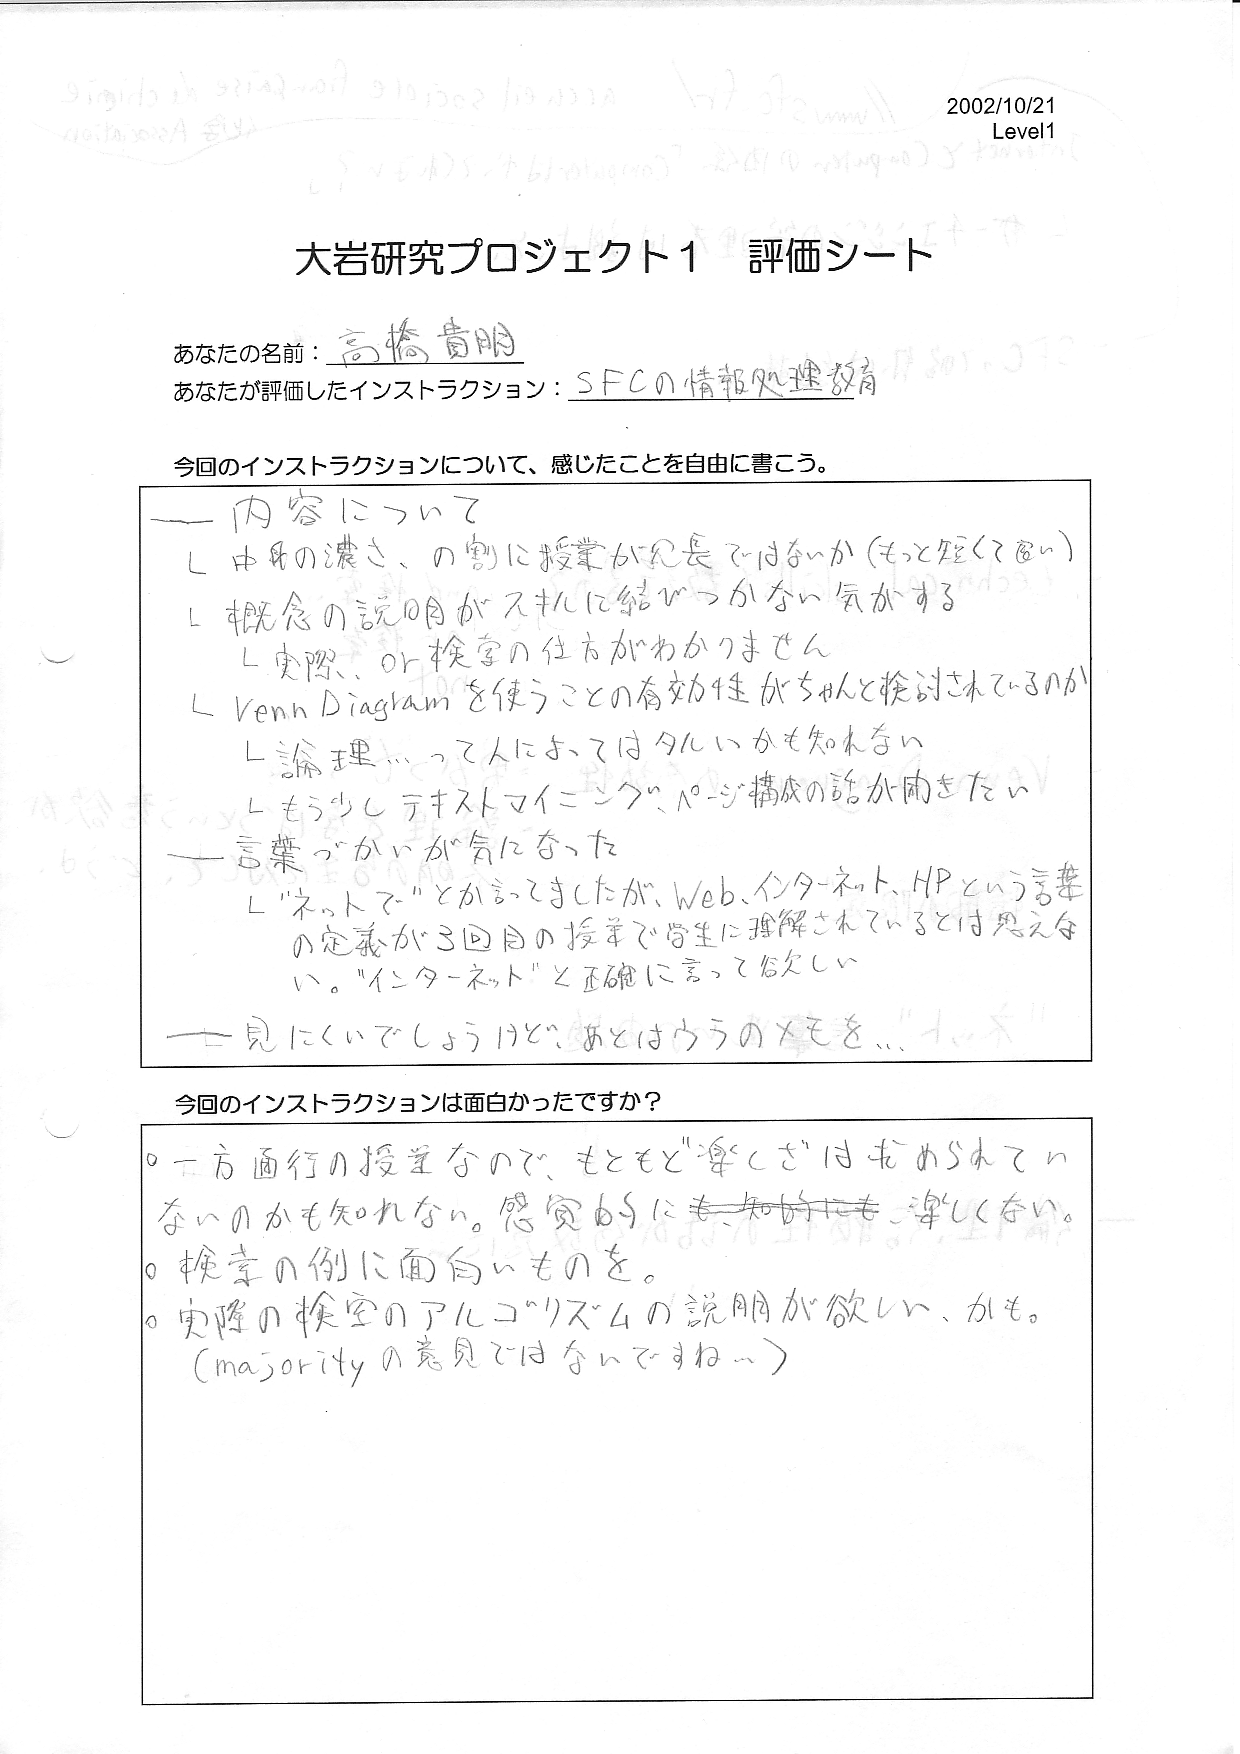 2002/10/21
Level1
大岩研究プロジェクト1 評価シート
あなたの名前：高橋貴明
あなたが評価したインストラクション：SFCの情報処理教育
今回のインストラクションについて、感じたことを自由に書こう。
― 内容について
└ 中身の濃さ、の割に授業が冗長ではないか(もっと短くて良い)
└ 概念の説明がスキルに結びつかない気がする
└ 実際、or検索の仕方がわかりません
└ Venn Diagramを使うことの有効性がちゃんと検討されているのか
└ 論理…って人によってはタルいかも知れない
└ もう少しテキストマイニング、ページ構成の話が聞きたい
― 言葉づかいが気になった
└ "ネットで"とか言ってましたが、Web、インターネット、HPという言葉
の定義が3回目の授業で学生に理解されているとは思えな
い。"インターネット"と正確に言って欲しい
― 見にくいでしょうけど、あとはウラのメモを…
今回のインストラクションは面白かったですか？
○ 一方通行の授業なので、もともと"楽しさ"は求められてい
ないのかも知れない。感覚的にも、知的にも、楽しくない。
○ 検索の例に面白いものを。
○ 実際の検索のアルゴリズムの説明が欲しい、かも。
(majorityの意見ではないですね…)